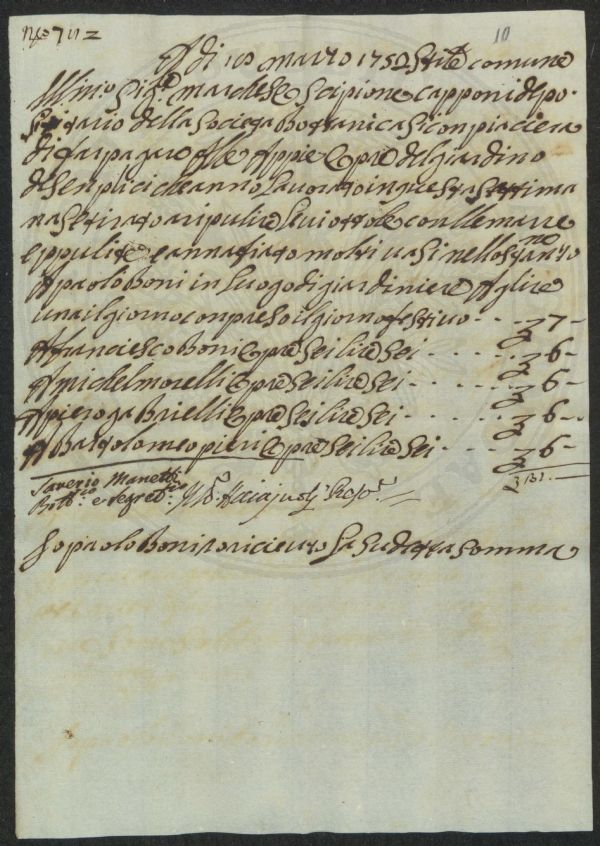 10
A dì 10 marzo 1750 Stile comune
Illmo Sigre marchese Scipione capponi dipo-
sitario della Societa Botanica si conpiaciera
di far pagare Alle Appie opre del giardino
de senplici che anno lavorato in questa setima
na stirato a ripulire le viottole con lle marre
e ppulite e annafiato molti vasi nello stanzo
A paolo Boni in luogo di giardiniere A glire
una il giorno conpreso il giorno festivo - - - 7 -
A franciesco Boni opre sei lire sei - - - - - 6 -
A michel morelli opre sei lire sei - - - - - 6 -
A piero gabrielli opre sei lire sei - - - - 6 -
A Bartolomeo pieri opre sei lire sei - - - - 6 -
Saverio Manetti 31. -
Botco e Segretrio
Io paolo Boni o ricieuto la sudetta somma